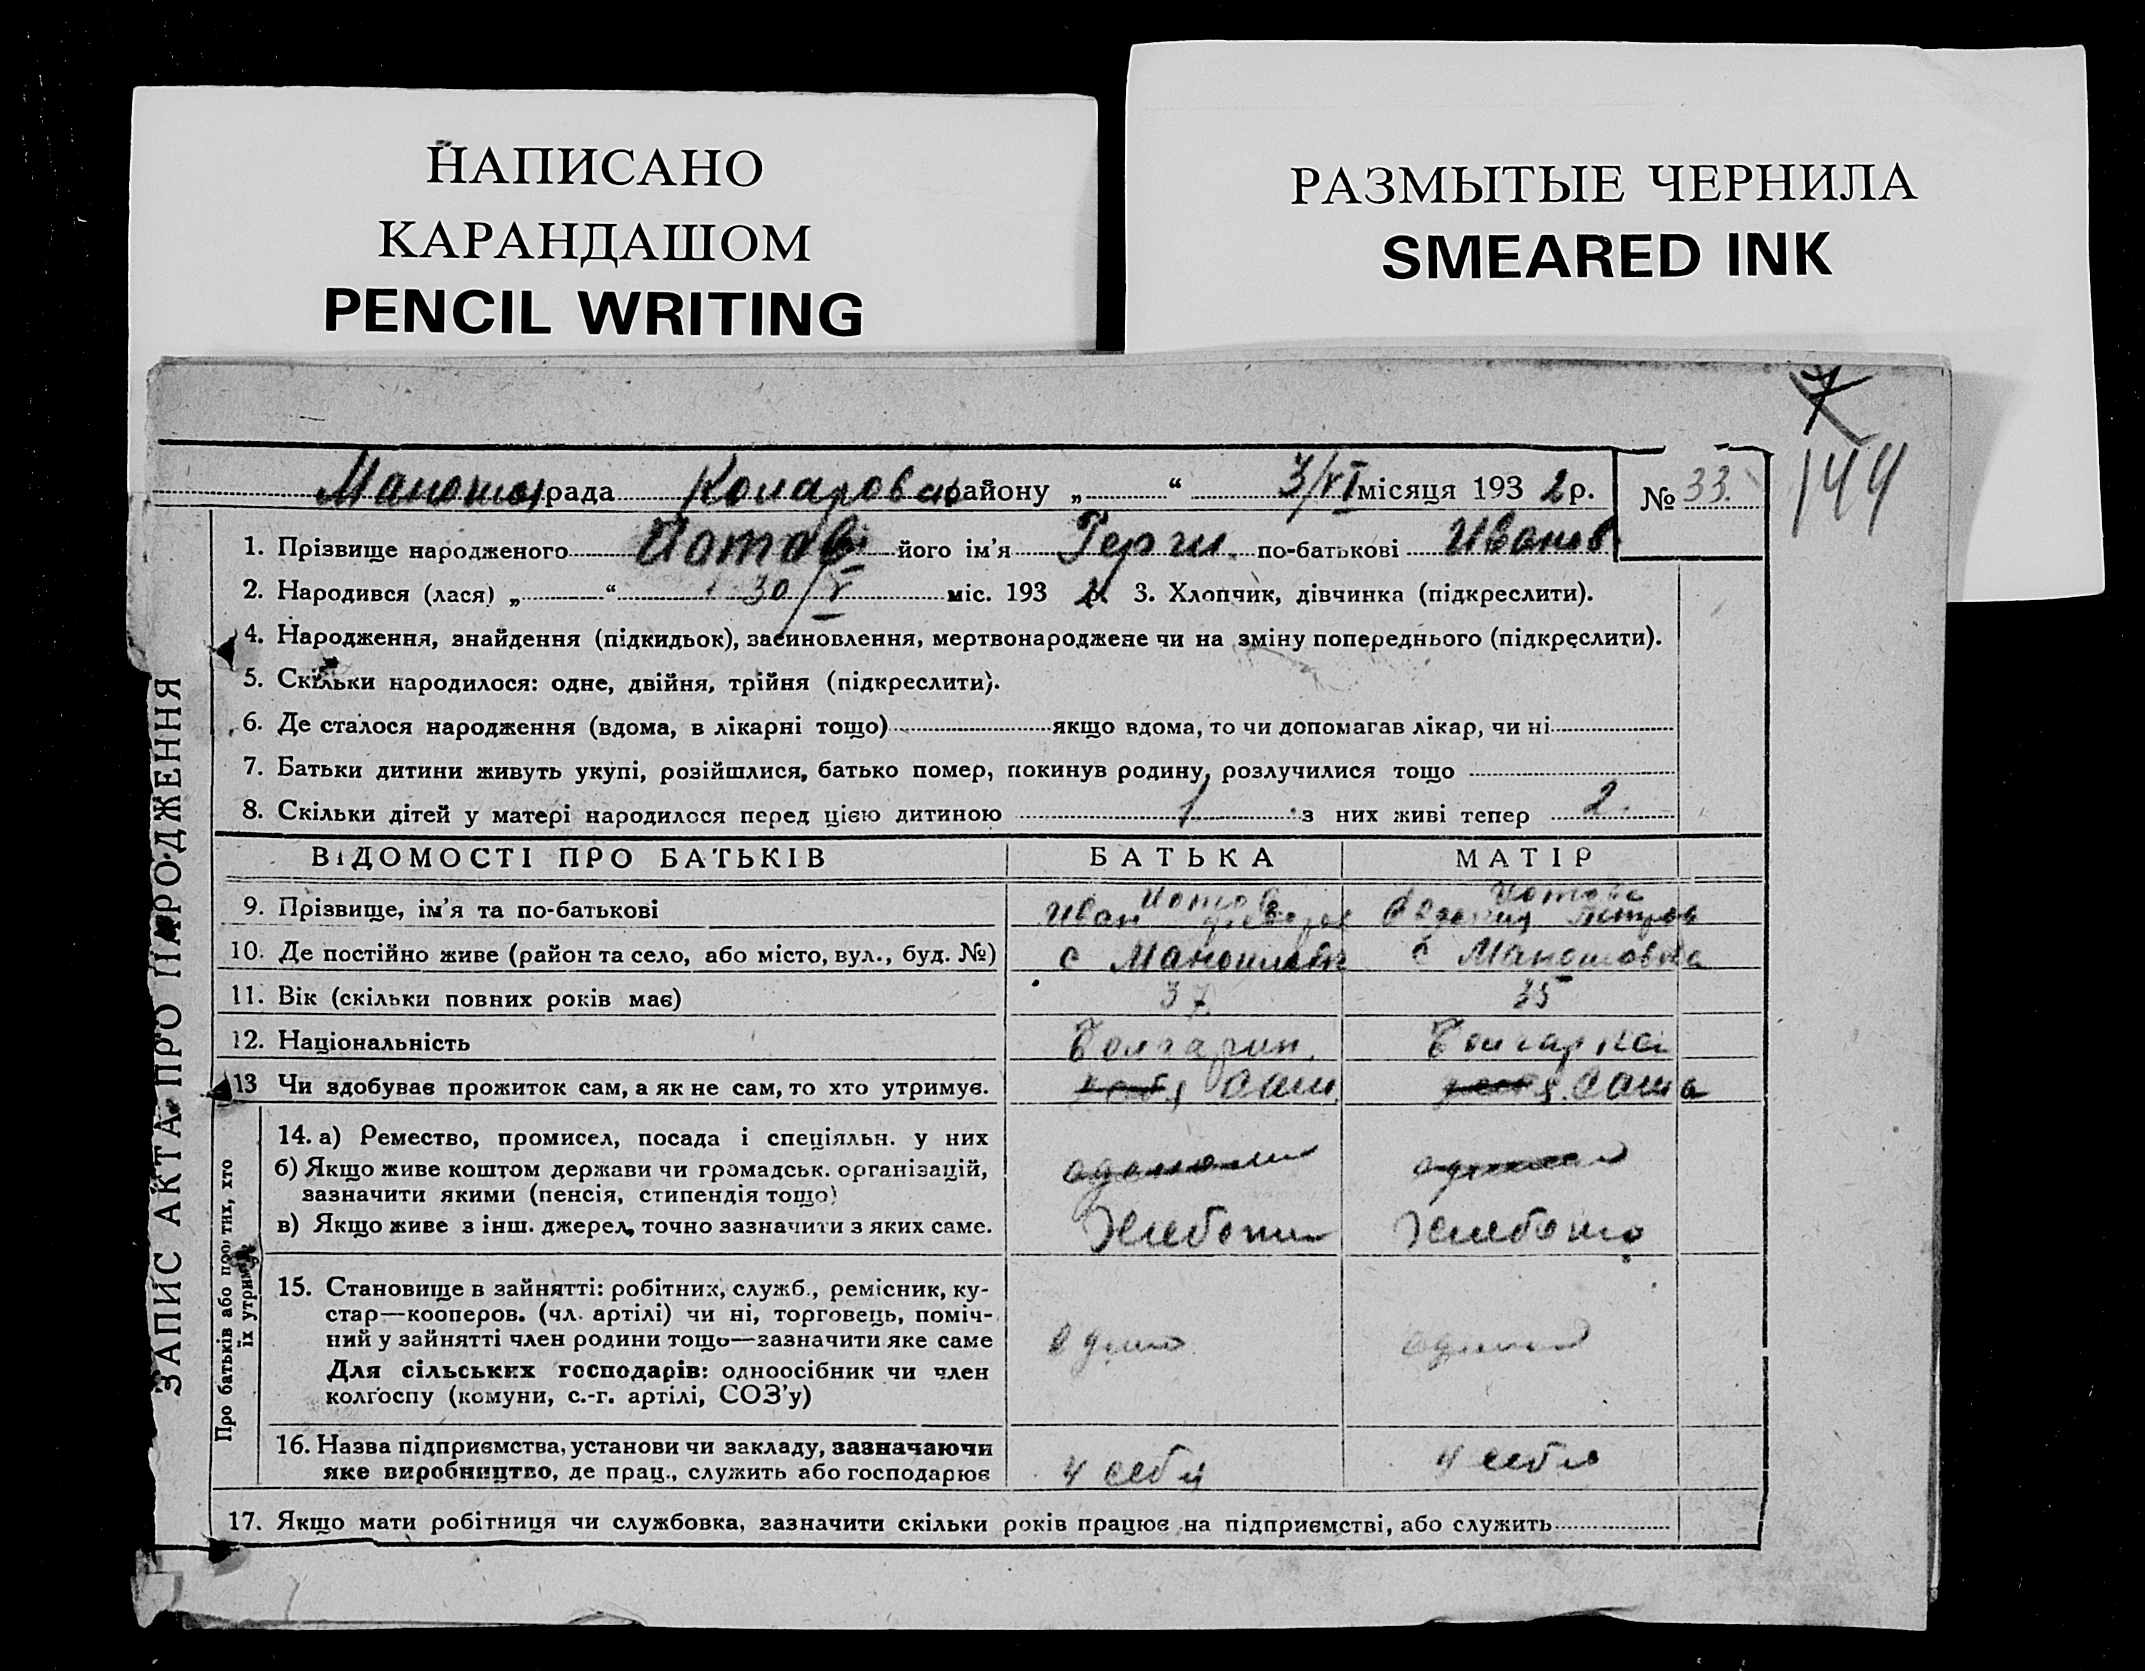 НАПИСАНО
КАРАНДАШОМ
PENCIL WRITING
РАЗМЫТЫЕ ЧЕРНИЛА
SMEARED INK
144
рада району „ “ 3/VI місяця 193 2 р. № 33.
1. Прізвище народженого Йотов його ім’я по-батькові Иванов
2. Народився (лася) „ “ 30/V міс. 193 2 3. Хлопчик, дівчинка (підкреслити).
4. Народження, знайдення (підкидьок), засиновлення, мертвонароджене чи на зміну попереднього (підкреслити).
5. Скільки народилося: одне, двійня, трійня (підкреслити).
6. Де сталося народження (вдома, в лікарні тощо) якщо вдома, то чи допомагав лікар, чи ні
7. Батьки дитини живуть укупі, розійшлися, батько помер, покинув родину, розлучилися тощо
8. Скільки дітей у матері народилося перед цією дитиною 1 з них живі тепер 2
ЗАПИС АКТА ПРО НАРОДЖЕННЯ
ВІДОМОСТІ ПРО БАТЬКІВ БАТЬКА МАТІР
9. Прізвище, ім’я та по-батькові Йотов Иван Йотова Петров
10. Де постійно живе (район та село, або місто, вул., буд. №) с с Маношовка
11. Вік (скільки повних років має) 37 35
12. Національність Болгарин. Болгарка
13 Чи здобуває прожиток сам, а як не сам, то хто утримує. сам. сама
Про батьків або про тих, хто їх утримує
14. а) Ремество, промисел, посада і спеціяльн. у них
б) Якщо живе коштом держави чи громадськ. організацій,
зазначити якими (пенсія, стипендія тощо)
в) Якщо живе з інш. джерел, точно зазначити з яких саме.
15. Становище в зайнятті: робітник, служб., ремісник, ку-
стар—кооперов. (чл. артілі) чи ні, торговець, поміч-
ний у зайнятті член родини тощо—зазначити яке саме
Для сільських господарів: одноосібник чи член
колгоспу (комуни, с.-г. артілі, СОЗ’у)
16. Назва підприємства, установи чи закладу, зазначаючи
яке виробництво, де прац., служить або господарює у себя у себя
17. Якщо мати робітниця чи службовка, зазначити скільки років працює на підприємстві, або служить